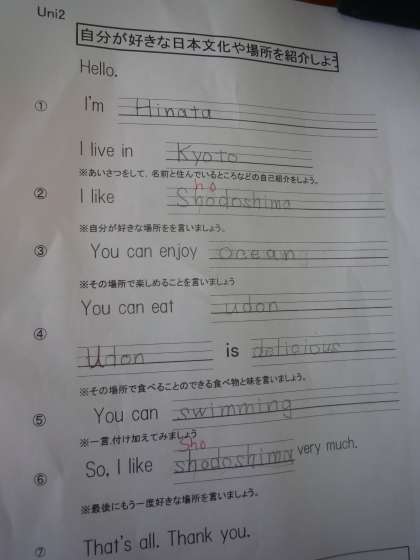 Uni2
自分が好きな日本文化や場所を紹介しよう
Hello.
① I'm Hinata
I live in Kyoto
※あいさつをして、名前と住んでいるところなどの自己紹介をしよう。
ho
② I like Shodoshima
※自分が好きな場所をを言いましょう。
③ You can enjoy ocean
※その場所で楽しめることを言いましょう
You can eat udon
④ Udon is delicious
※その場所で食べることのできる食べ物と味を言いましょう。
⑤ You can swimming
※一言、付け加えてみましょう
Sho
⑥ So, I like shodoshima very much.
※最後にもう一度好きな場所を言いましょう。
⑦ That's all. Thank you.